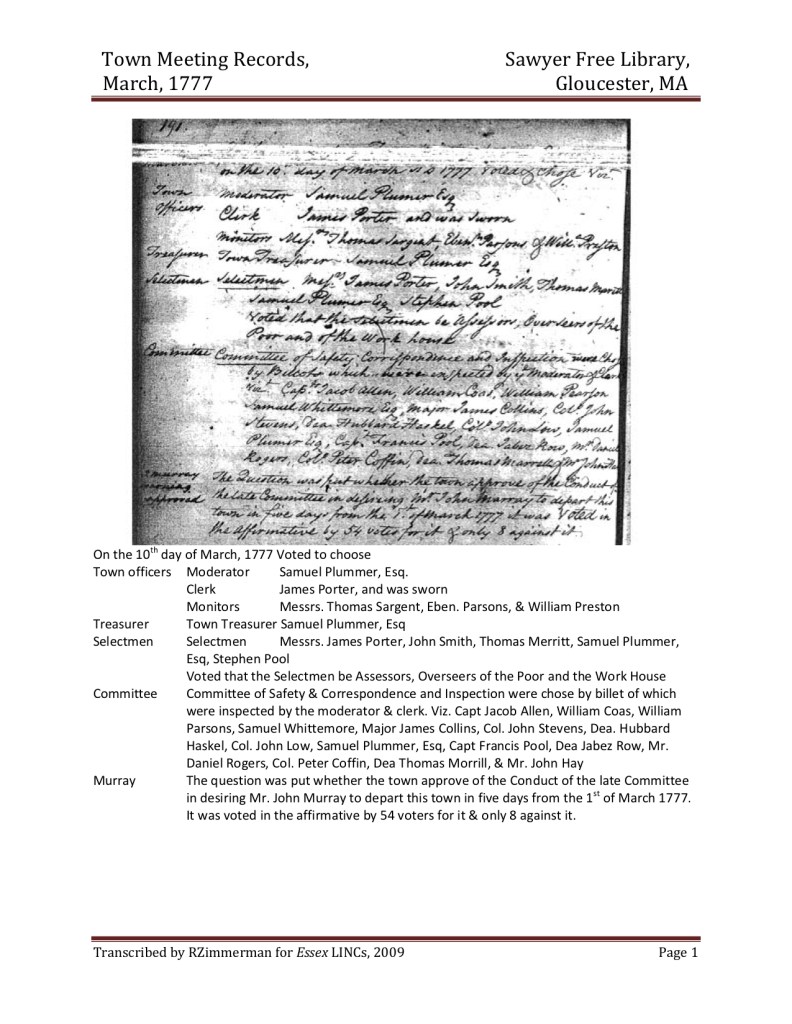 Town Meeting Records, Sawyer Free Library,
March, 1777 Gloucester, MA
191.
on the 10th day of March A D 1777 Voted & Chose Viz.
Town Moderator Samuel Plumer Esq
officers Clerk James Porter and was sworn
Monitors Messrs Thomas Sargent Eben. Parsons & Will. Preston
Treasurer Town Treasurer Samuel Plumer Esq
Selectmen Selectmen Messrs James Porter, John Smith, Thomas
Samuel Plumer Esq Stephen Pool
Voted that the Selectmen be Assessors, Overseers of the
Poor and of the Work house
Committee Committee of Safety Correspondence and Inspection were
by which were inspected by ye Moderator & Clerk
Viz Capt Jacob Allen, William Coas, William Pearson
Samuel Whittemore Esq, Major James Collins, Coll John
Stevens, Dea. Hubbard Haskel, Coll John Low, Samuel
Plumer Esq, Capt Francis Pool, Dea Jabez Row, Mr
Rogers, Coll Peter Coffin, Dea. Thomas & Mr John
murray The Question was put whether the town approve of the Conduct of
the late Committee in desiring Mr John Murray to depart this
approved town in five days from the 1st of March 1777 it was Voted in
the affirmative by 54 votes for it & only 8 against it.
On the 10th day of March, 1777 Voted to choose
Town officers Moderator Samuel Plummer, Esq.
Clerk James Porter, and was sworn
Monitors Messrs. Thomas Sargent, Eben. Parsons, & William Preston
Treasurer Town Treasurer Samuel Plummer, Esq
Selectmen Selectmen Messrs. James Porter, John Smith, Thomas Merritt, Samuel Plummer,
Esq, Stephen Pool
Voted that the Selectmen be Assessors, Overseers of the Poor and the Work House
Committee Committee of Safety & Correspondence and Inspection were chose by billet of which
were inspected by the moderator & clerk. Viz. Capt Jacob Allen, William Coas, William
Parsons, Samuel Whittemore, Major James Collins, Col. John Stevens, Dea. Hubbard
Haskel, Col. John Low, Samuel Plummer, Esq, Capt Francis Pool, Dea Jabez Row, Mr.
Daniel Rogers, Col. Peter Coffin, Dea Thomas Morrill, & Mr. John Hay
Murray The question was put whether the town approve of the Conduct of the late Committee
in desiring Mr. John Murray to depart this town in five days from the 1st of March 1777.
It was voted in the affirmative by 54 voters for it & only 8 against it.
Transcribed by RZimmerman for Essex LINCs, 2009 Page 1